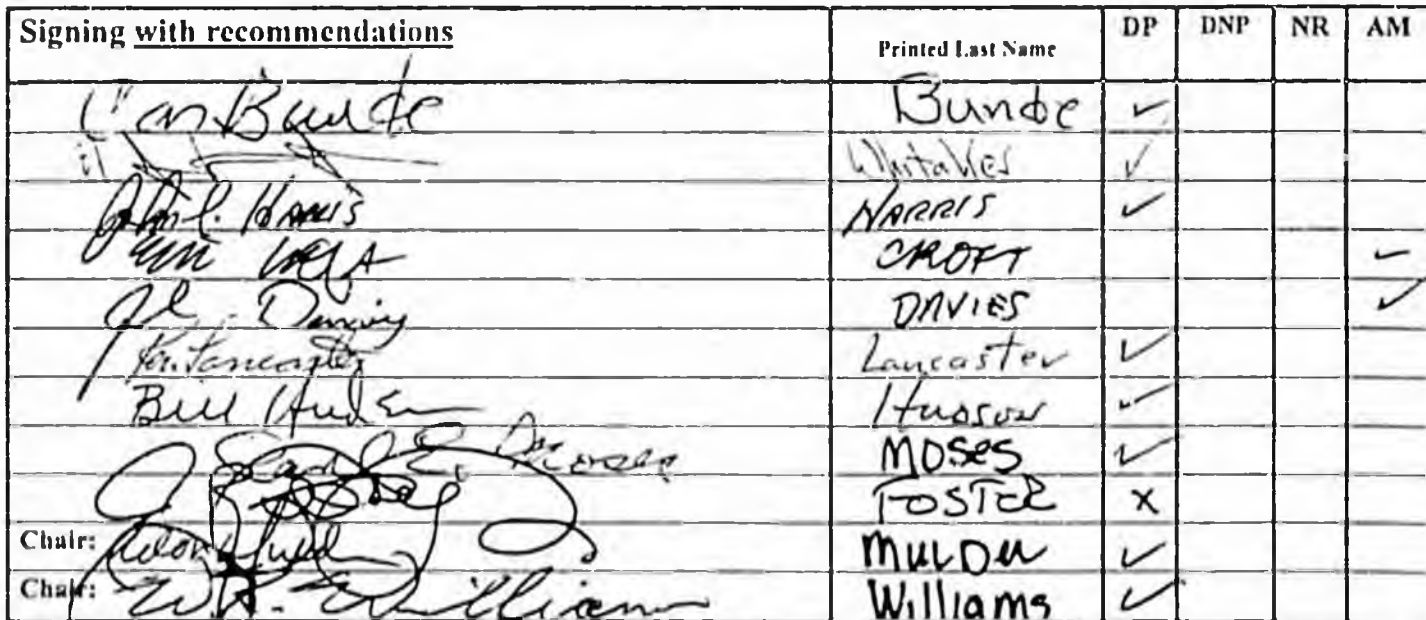 Signing with recommendations Printed Last Name DP DNP NR AM
Con Bunde Bunde ✓
Whitaker ✓
John L. Harris HARRIS ✓
CROFT ✓
DAVIES ✓
Lancaster Lancaster ✓
Bill Hudson Hudson ✓
Carl E. Moses MOSES ✓
FOSTER X
Chair: MULDER ✓
Chair: W.K. Williams Williams ✓